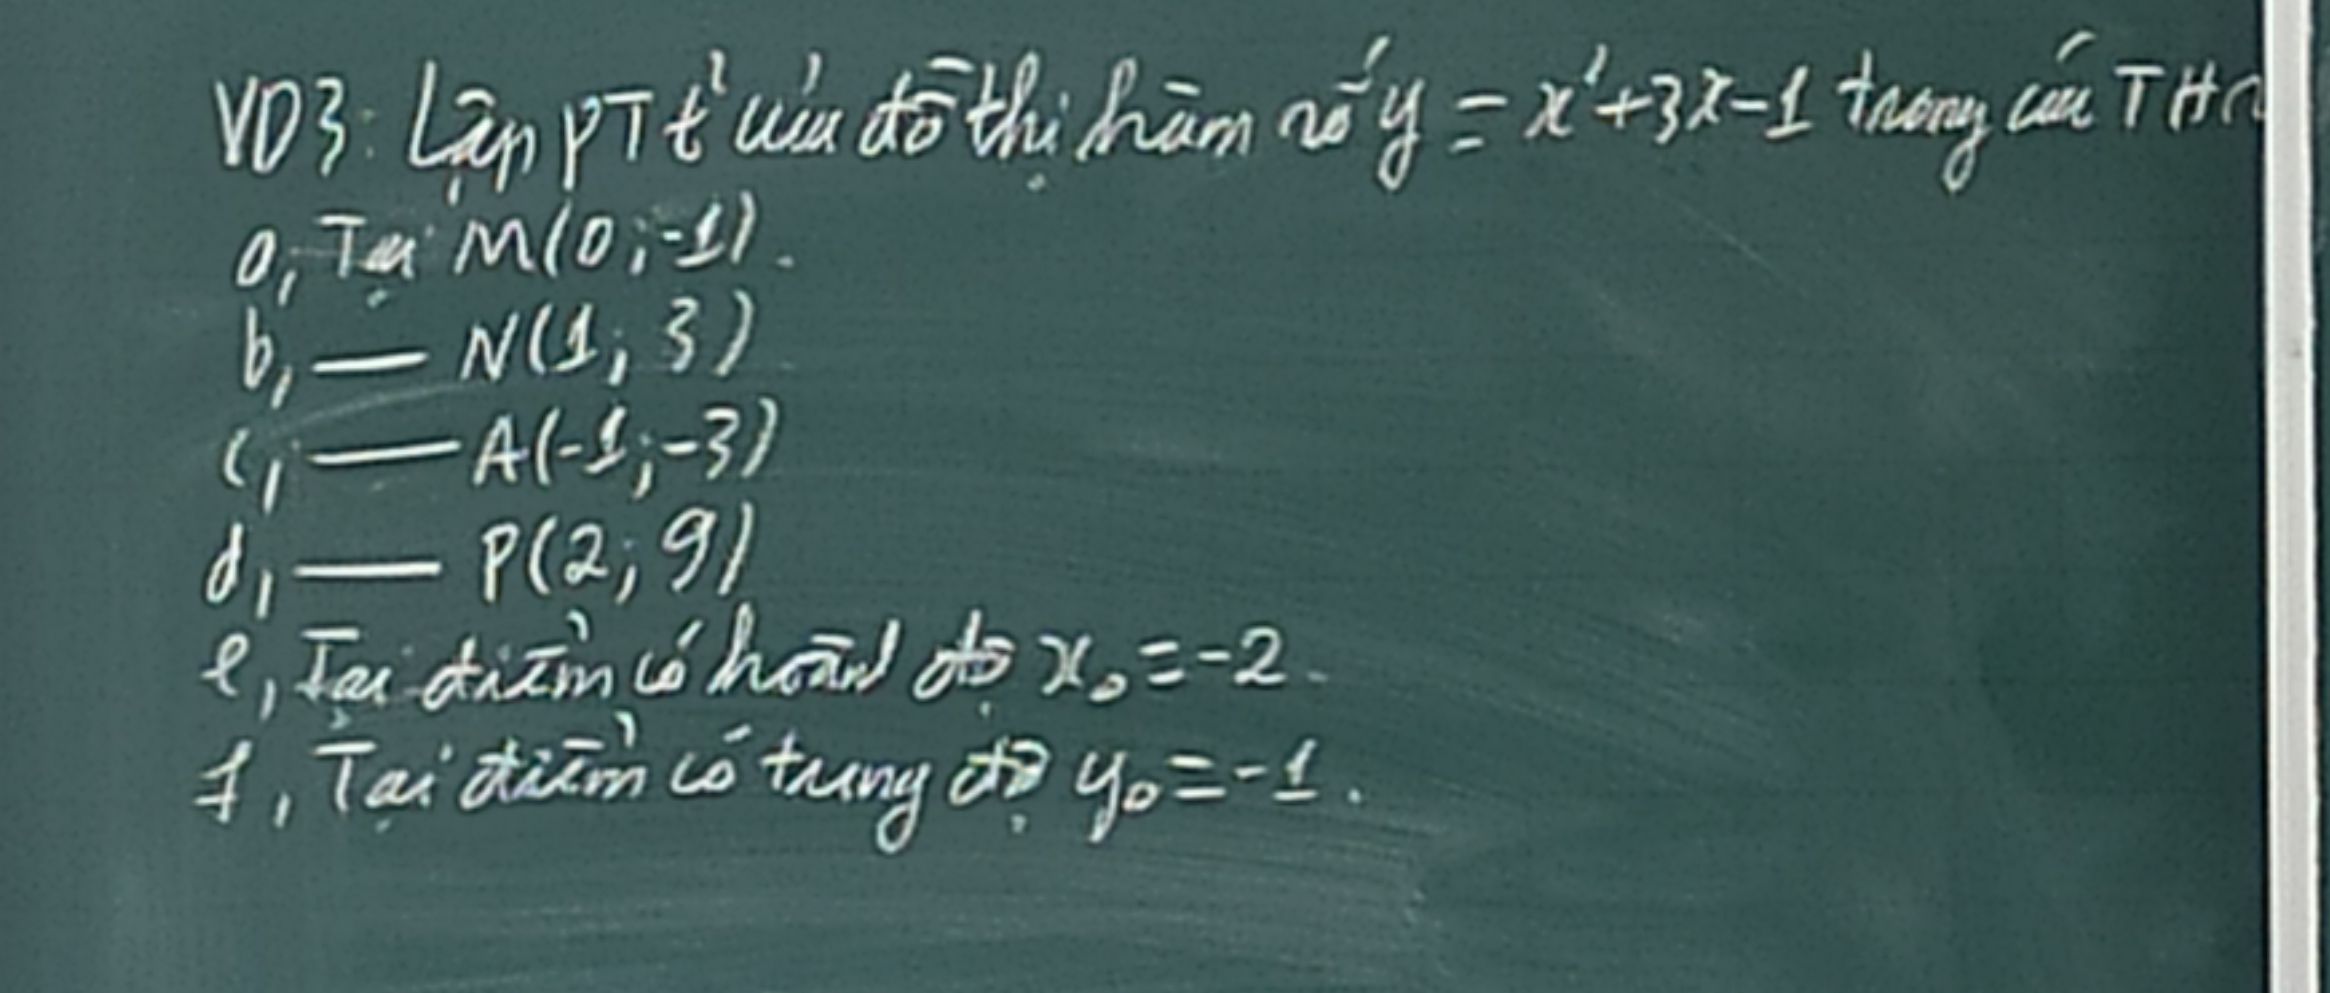 VD3: Lập PTt² của đồ thị hàm số y = x²+3x-1 trong các TH
a, Tại M(0;-1).
b, — N(1; 3)
c, — A(-1;-3)
d, — P(2; 9)
e, Tại điểm có hoành độ x₀ = -2.
f, Tại điểm có tung độ y₀ = -1.